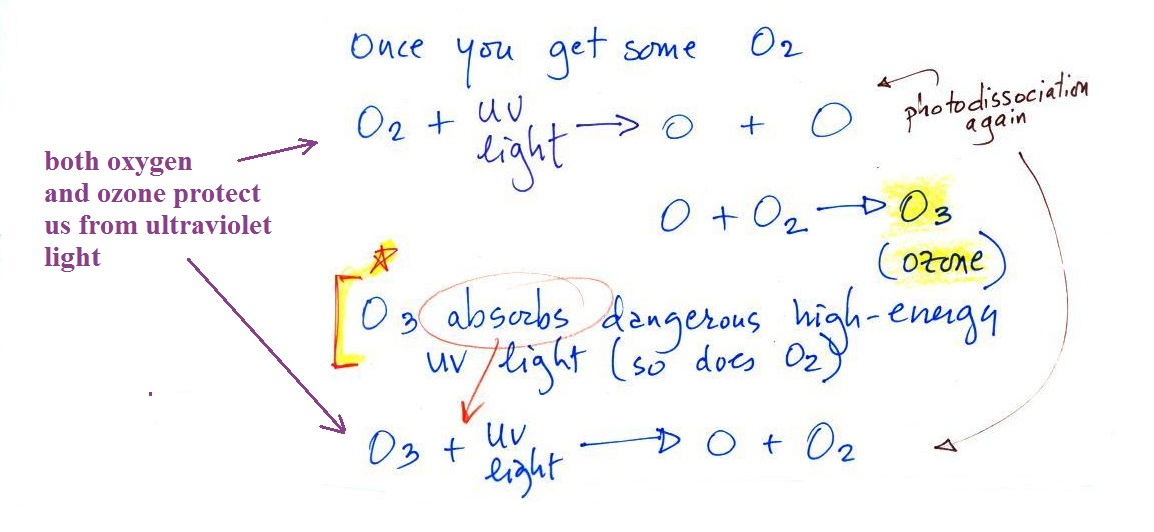 Once you get some O2
O2 + uv light → O + O
photodissociation
again
both oxygen
and ozone protect
us from ultraviolet
light
O + O2 → O3
(ozone)
O3 absorbs dangerous high-energy
uv light (so does O2)
O3 + uv light → O + O2